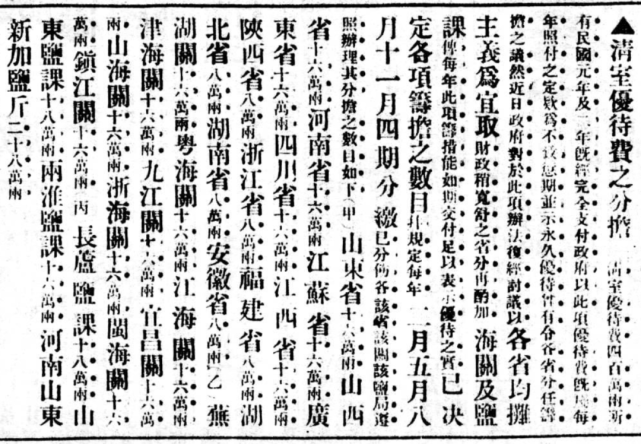 ▲淸室優待費之分擔 淸室優待費四百萬兩所
有民國元年及二年旣經完全支付政府以此項優待費旣 每
年照付之定欵爲不 愆期並示永久優待 有令各省分任籌
擔之議然近日政府對於此項辦法復經討議以各省均攤
主義爲宜取財政稍寬舒之省分再酌加海關及鹽
課俾每年此項籌措能如期交付足以表示優待之實已决
定各項籌擔之數目 規定每年二月五月八
月十一月四期分繳已分飭各該省該關該鹽局遵
照辦理其分擔之數目如下(甲)山東省十六萬兩山西
省十六萬兩河南省十六萬兩江蘇省十六萬兩廣
東省十六萬兩四川省十六萬兩江西省十六萬兩
陝西省八萬兩浙江省八萬兩福建省八萬兩湖
北省八萬兩湖南省八萬兩安徽省八萬兩(乙)蕪
湖關十六萬兩粤海關十六萬兩江海關十六萬兩
津海關十六萬兩九江關十六萬兩宜昌關十六萬
兩山海關十六萬兩浙海關十六萬兩閩海關十六
萬兩鎭江關十六萬兩(丙)長蘆鹽課十八萬兩山
東鹽課十八萬兩兩淮鹽課十六萬兩河南山東
新加鹽斤二十八萬兩